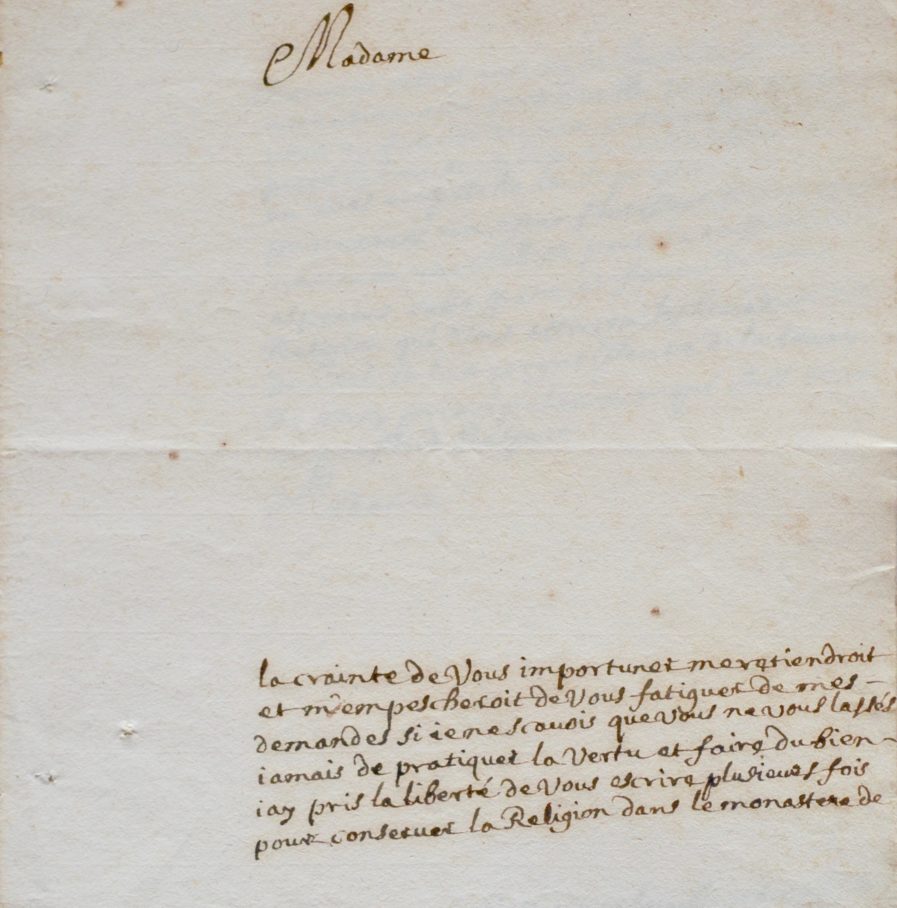 Madame
la crainte de Vous importuner me retiendroit
et m'empescheroit de Vous fatiguer de mes –
demandes si ie ne scavois que vous ne vous lassés
iamais de pratiquer la Vertu et faire du bien –
iay pris la liberté de Vous escrire plusieurs fois
pour conserver la Religion dans le monastere de